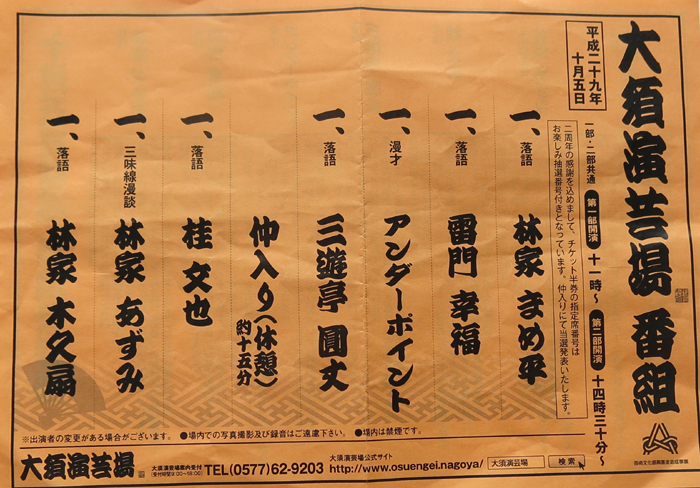 大須演芸場 番組
平成二十九年
十月五日
一部・二部共通 第一部開演 十一時～ 第二部開演 十四時三十分～
二周年の感謝を込めまして、チケット半券の指定席番号は
お楽しみ抽選番号付きとなっています。仲入りにて当選発表いたします。
一、落語 林家 まめ平
一、落語 雷門 幸福
一、漫才 アンダーポイント
一、落語 三遊亭 圓丈
仲入り(休憩)
約十五分
一、落語 桂 文也
一、三味線漫談 林家 あずみ
一、落語 林家 木久扇
※出演者の変更がある場合がございます。 ●場内での写真撮影及び録音はご遠慮下さい。 ●場内は禁煙です。
大須演芸場
大須演芸場案内受付
(受付時間9:00～18:00)
TEL(0577)62-9203
大須演芸場公式サイト
http://www.osuengei.nagoya/
大須演芸場 検索